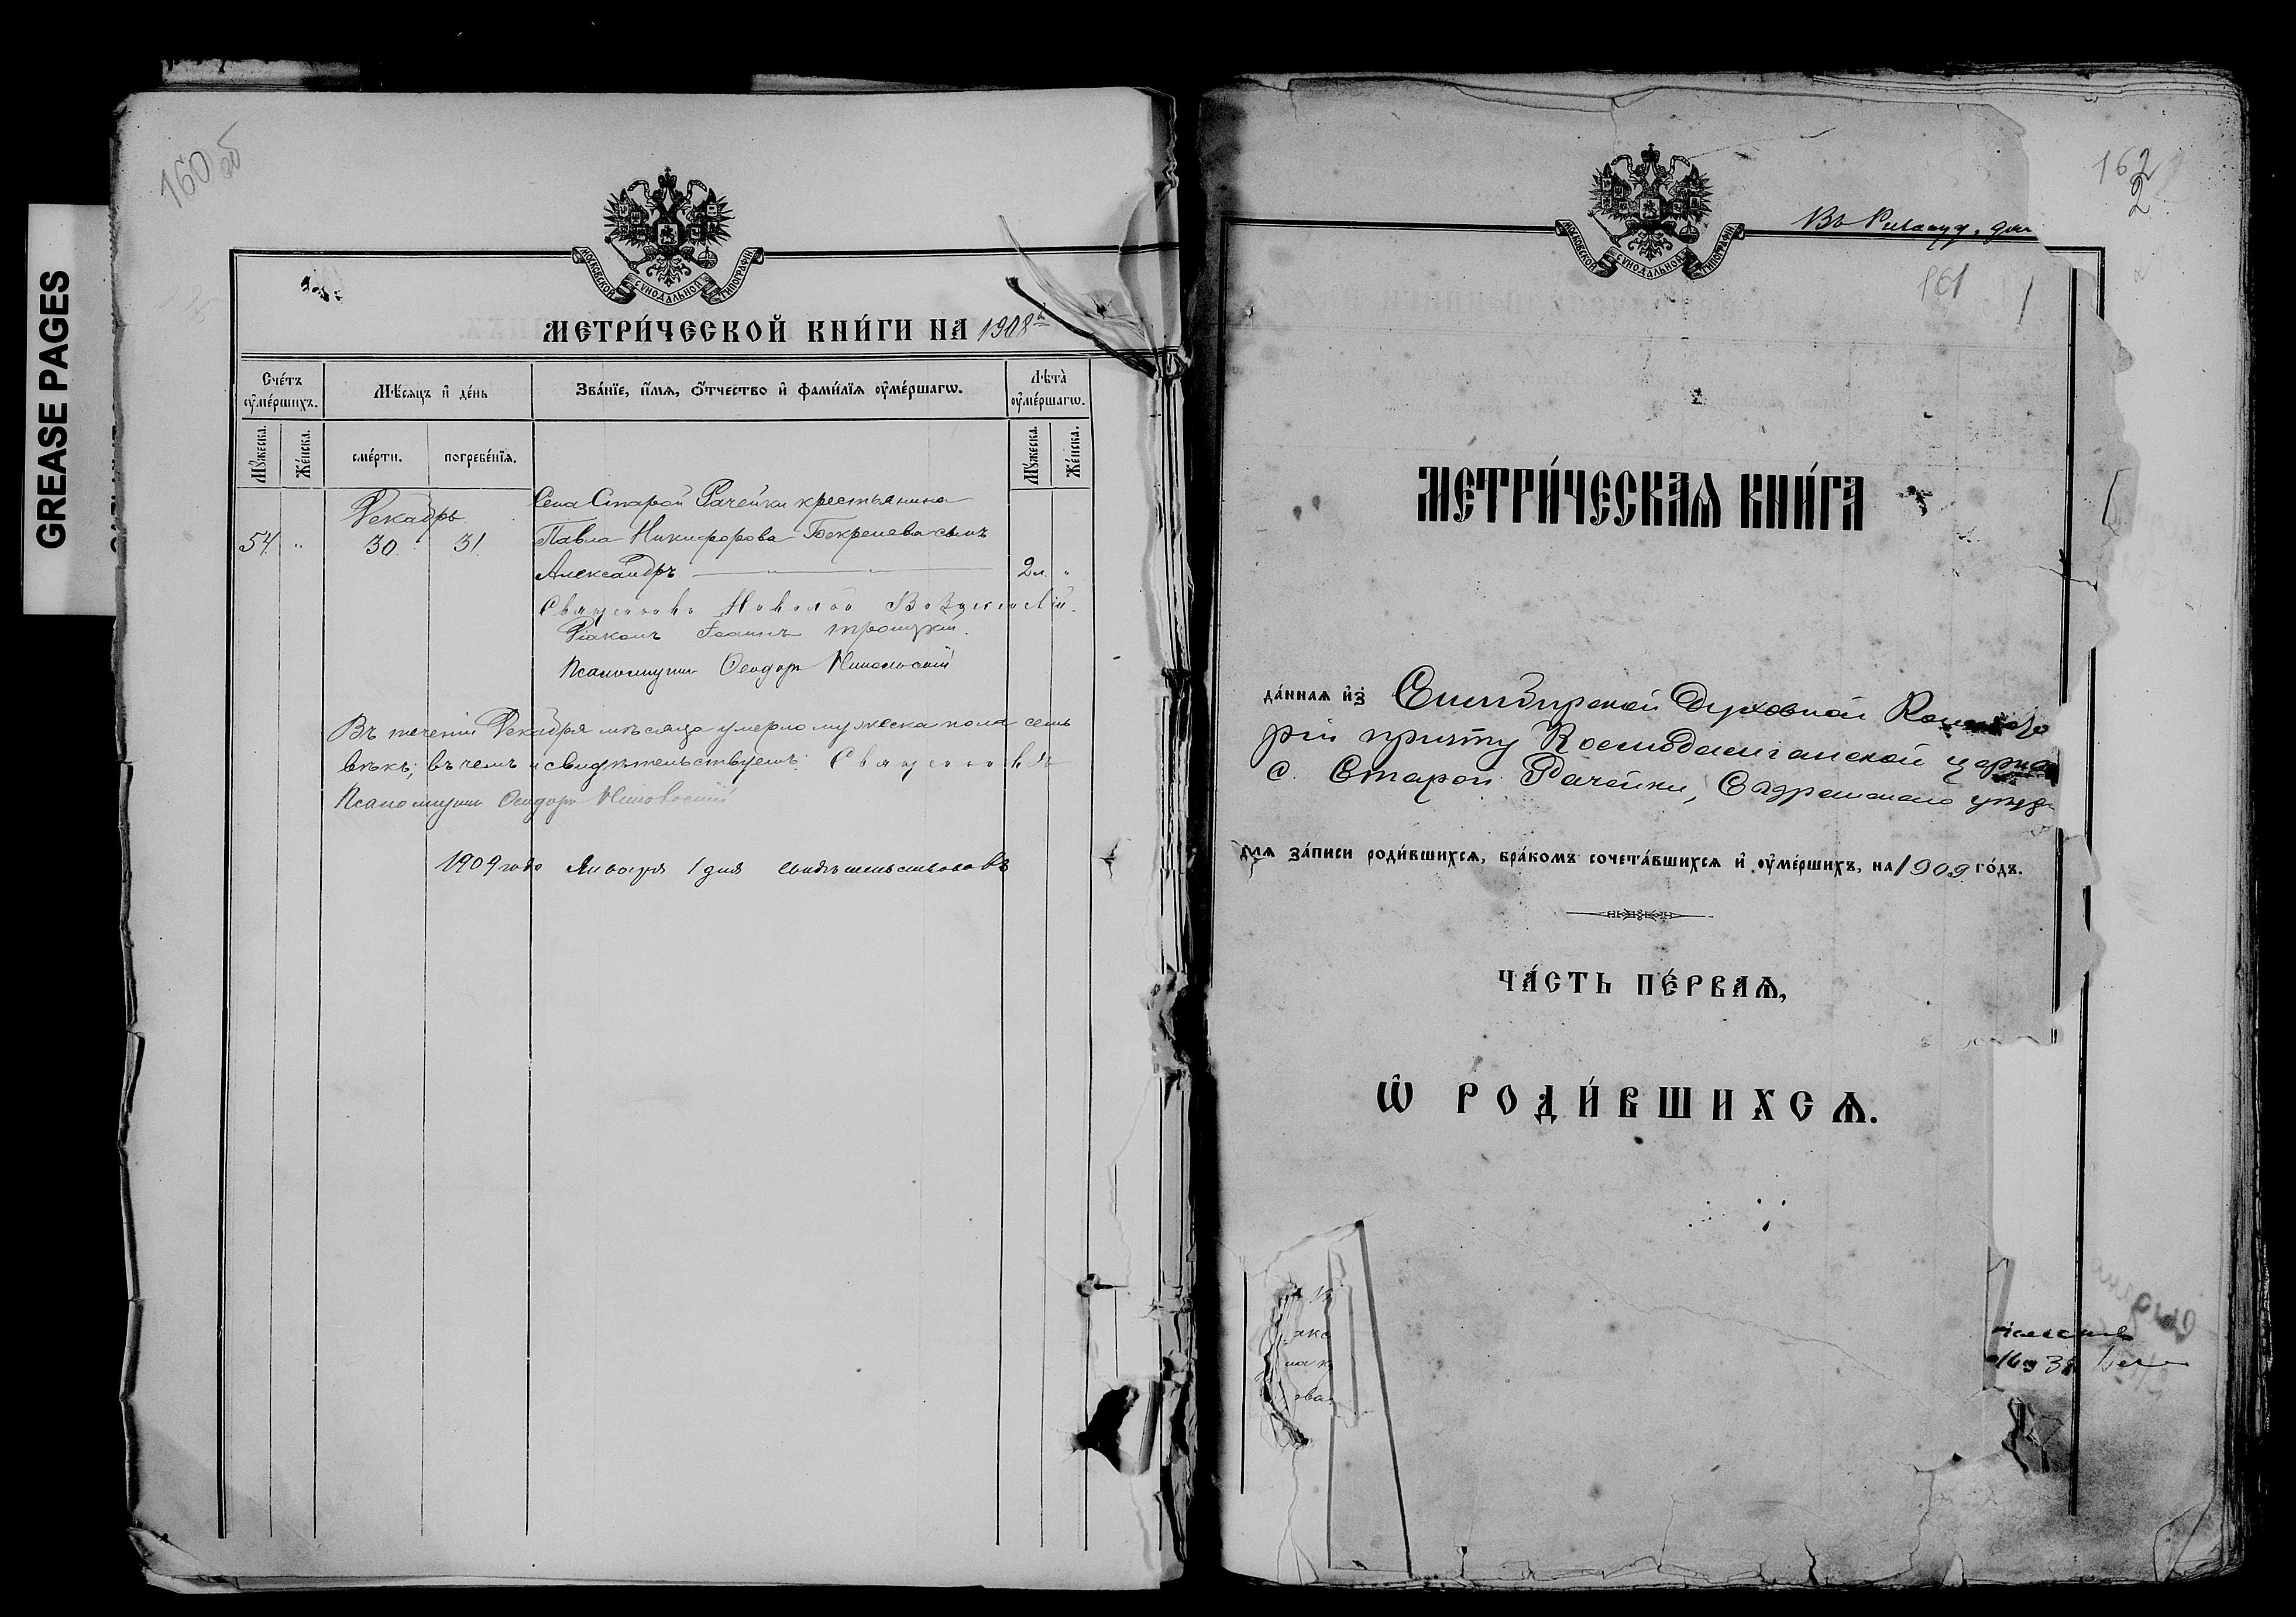 GREASE PAGES
160 об
МОСКОВСКОЙ СѴНОДАЛЬНОЙ ТИПОГРАФІИ
МЕТРИ́ЧЕСКОЙ КНИ́ГИ НА 1908 й
Сче́тъ ᲂу҆ме́ршихъ.
Мѣ́сяцъ и҆ де́нь
Зва́нїе, и҆́мѧ, ѻ҆́тчество и҆ фами́лїѧ ᲂу҆ме́ршагѡ.
Лѣ́та ᲂу҆ме́ршагѡ.
Мꙋ́жеска.
Же́нска.
сме́рти.
погребе́нїѧ.
Мꙋ́жеска.
Же́нска.
Декабрь
Села Старой Рачейки крестьянина
54 " 30 31 Павла Никифорова Бекренева сынъ
Александръ 2 л. "
Священникъ Николай
Діаконъ Іоаннъ Троицкій.
Псаломщикъ Ѳеодоръ Никольскій
Въ теченіи Декабря мѣсяца умерло мужеска пола семь
вѣкъ; въ чемъ и свидѣтельствуемъ: Священникъ
Псаломщикъ Ѳеодоръ Никольскій
1909 года Января 1 дня свидѣтельствовалъ
162
2
Въ
161
1
МОСКОВСКОЙ СѴНОДАЛЬНОЙ ТИПОГРАФІИ
МЕТРИ́ЧЕСКАѦ КНИ́ГА
да́ннаѧ и҆з̾ Симбирской Духовной Консисто
ріи причту Космодаміанской церкви
с. Старой Рачейки, Сызранскаго уѣзда
длѧ за́писи роди́вшихсѧ, бра́комъ сочета́вшихсѧ и҆ ᲂу҆ме́ршихъ, на 1909 го́дъ.
ЧА́СТЬ ПЕ́РВАѦ,
Ѽ РОДИ́ВШИХСѦ.